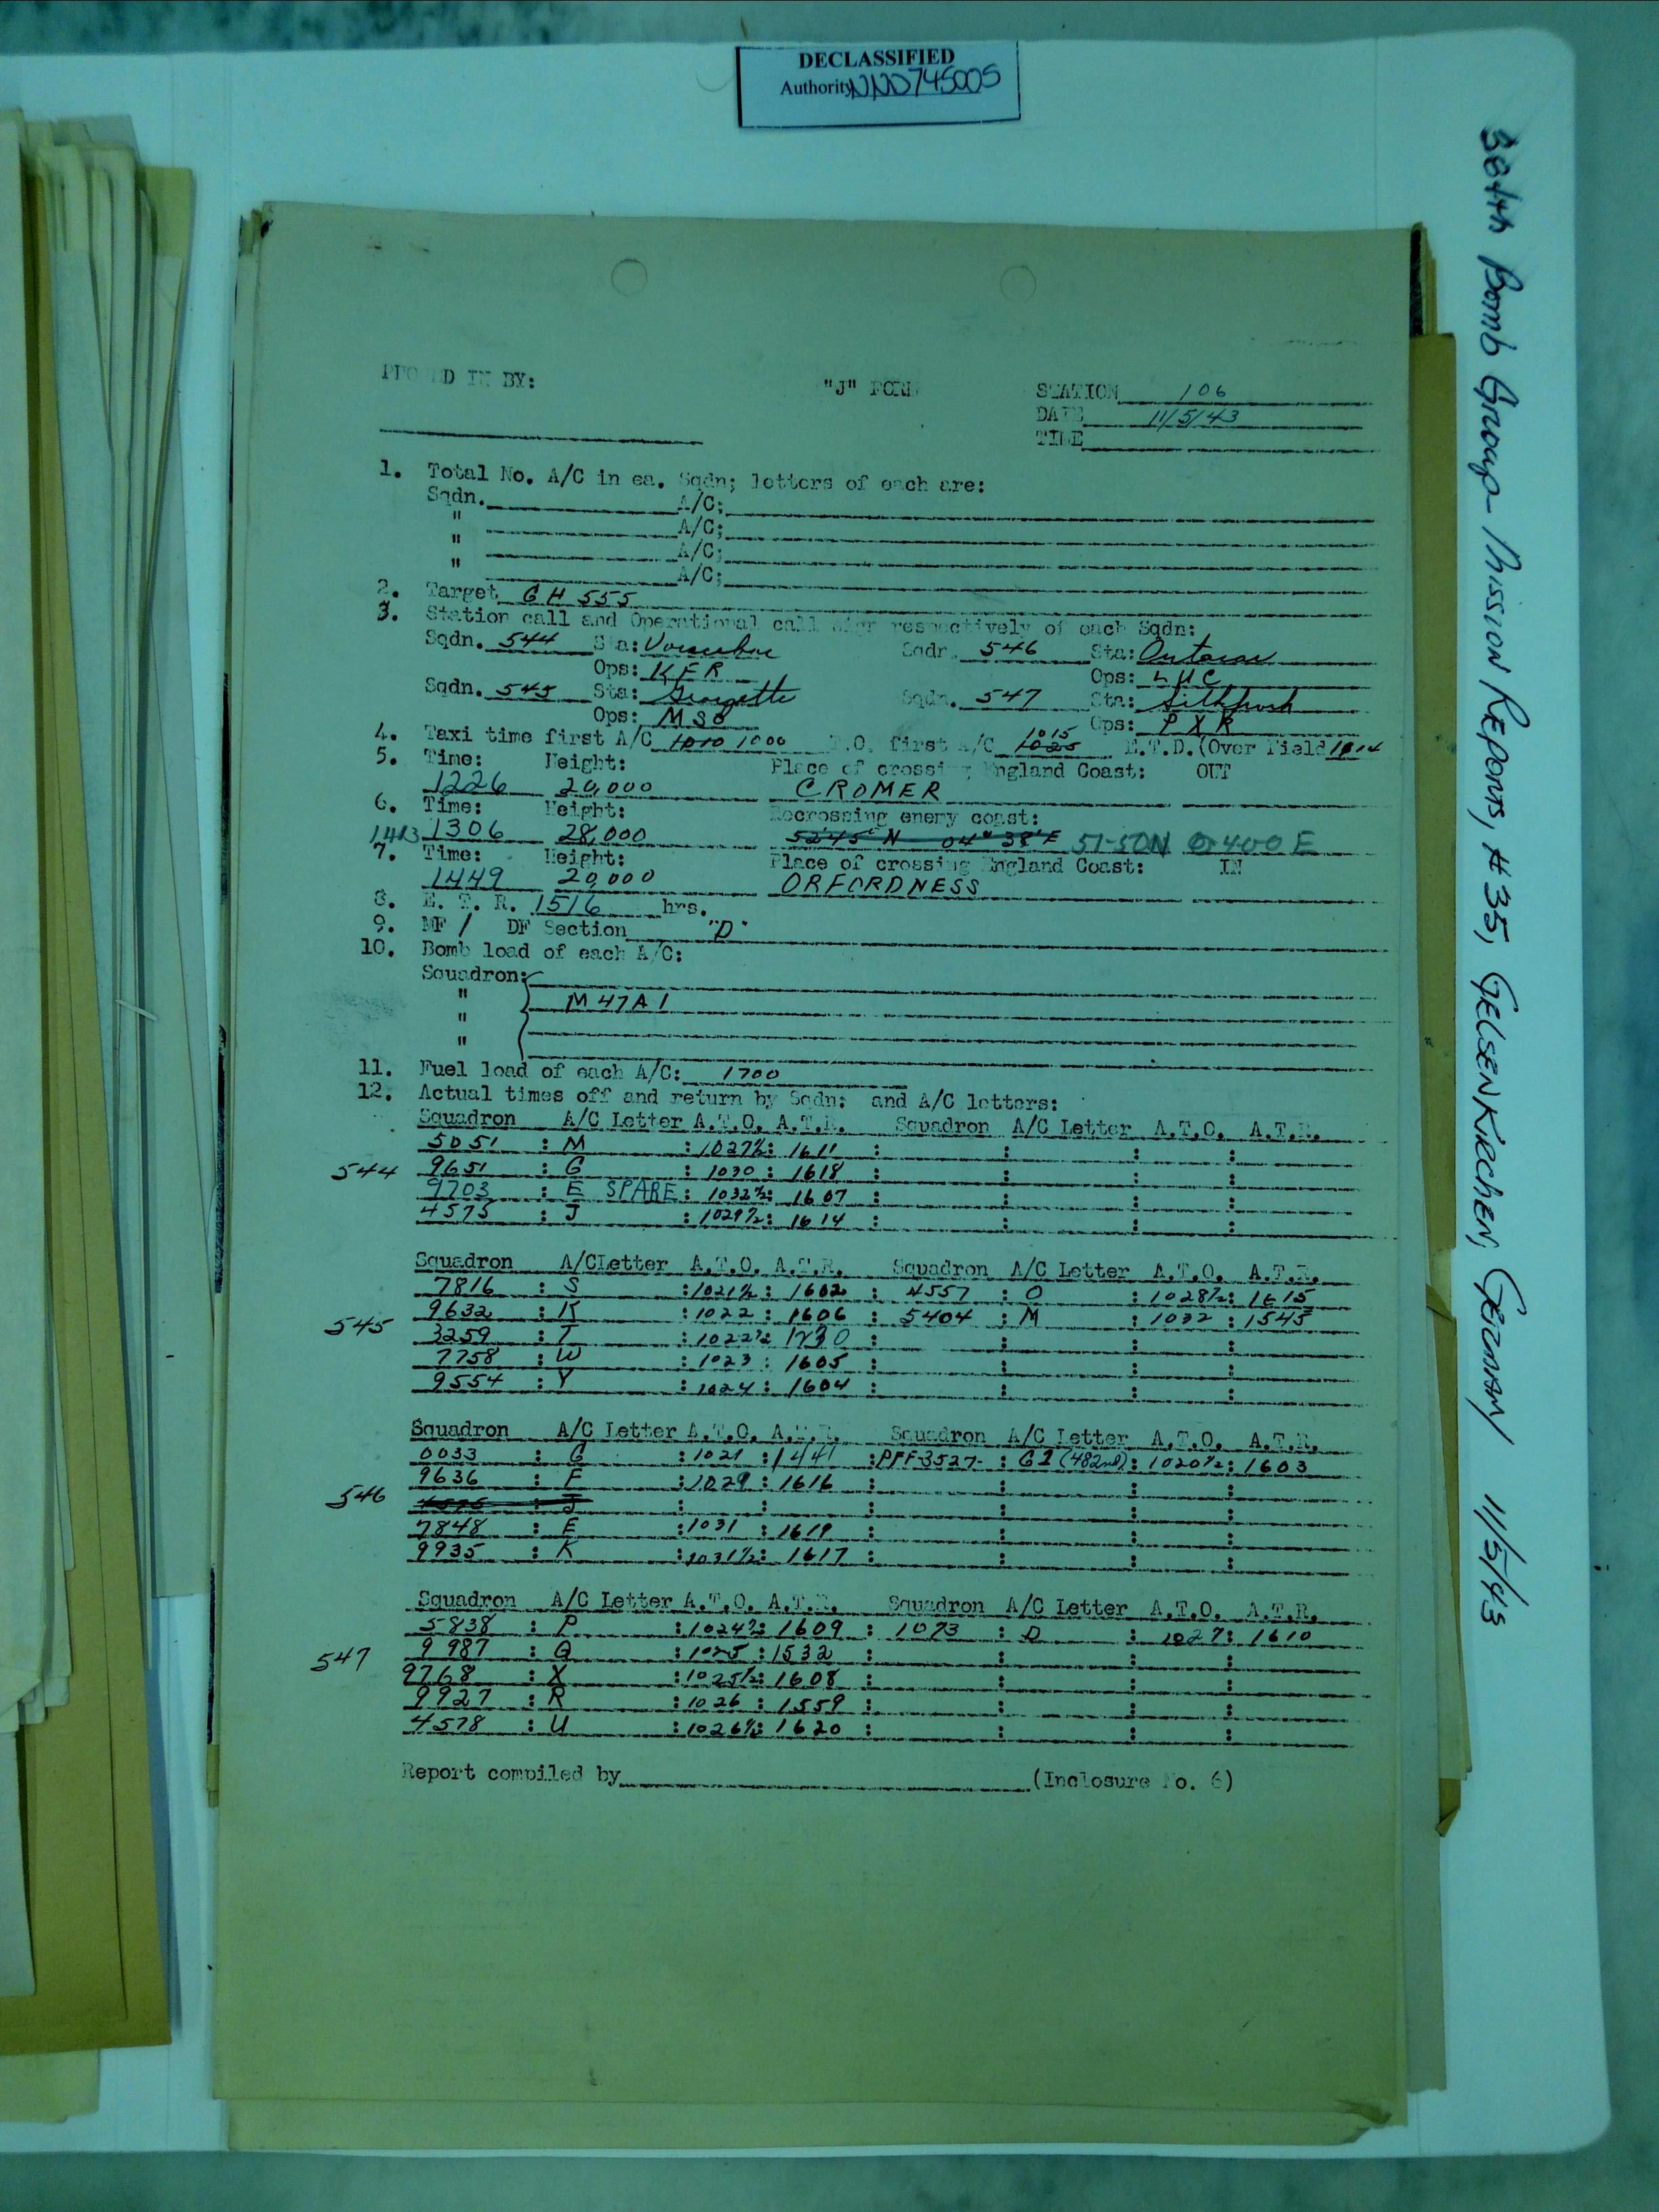 DECLASSIFIED
Authority NND745005
384th Bomb Group Mission Reports, #35, Gelsenkirchen, Germany 11/5/43
IN BY: "J" FORM STATION 106
DATE 11/5/43
TIME
1. Total No. A/C in ea. Sqdn; letters of each are:
Sqdn. A/C:
" A/C;
" A/C;
" A/C;
2. Target GH 555
3. Station call and Operational call sign respectively of each Sqdn:
Sqdn. 544 Sta: Sqdn. 546 Sta:
Ops: KFR Ops: LHC
Sqdn. 545 Sta: Georgette Sqdn. 547 Sta:
Ops: MSO Ops: PXR
4. Taxi time first A/C 1010 1000 T.O. first A/C 1025 1015 E.T.D. (Over Field 1114
5. Time: Height: Place of crossing England Coast: OUT
1226 20,000 CROMER
6. Time: Height: Recrossing enemy coast:
1413 1306 28,000 52°45' N 04° 38' E 51-50N 0400E
7. Time: Height: Place of crossing England Coast: IN
1449 20,000 ORFORDNESS
8. E. T. R. 1516 hrs.
9. MF / DF Section "D"
10. Bomb load of each A/C:
Squadron:
" M47A1
"
"
11. Fuel load of each A/C: 1700
12. Actual times off and return by Sqdn: and A/C letters:
Squadron A/C Letter A.T.O. A.T.R. Squadron A/C Letter A.T.O. A.T.R.
5051 : M : 1027½ : 1611 : : : :
544 9651 : G : 1030 : 1618 : : : :
9703 : E SPARE : 1032½ : 1607 : : : :
4575 : J : 1029½ : 1614 : : : :
Squadron A/CLetter A.T.O. A.T.R. Squadron A/C Letter A.T.O. A.T.R.
7816 : S : 1021½ : 1602 : 4557 : O : 1028½ : 1615
9632 : K : 1022 : 1606 : 5404 : M : 1032 : 1545
545 3259 : T : 1022½ : : : : :
7758 : W : 1023 : 1605 : : : :
9554 : Y : 1024 : 1604 : : : :
Squadron A/C Letter A.T.O. A.T.R. Squadron A/C Letter A.T.O. A.T.R.
0033 : G : 1021 : 1441 : PFF-3527- : G1 (482nd) : 1020½ : 1603
9636 : F : 1029 : 1616 : : : :
546 4575 : J : : : : : :
7848 : E : 1031 : 1619 : : : :
9935 : K : 1031½ : 1617 : : : :
Squadron A/C Letter A.T.O. A.T.R. Squadron A/C Letter A.T.O. A.T.R.
5838 : P : 1024½ : 1609 : 1073 : D : 1027 : 1610
9987 : Q : 1025 : 1532 : : : :
547 9768 : X : 1025½ : 1608 : : : :
9927 : R : 1026 : 1559 : : : :
4578 : U : 1026½ : 1620 : : : :
Report compiled by (Inclosure No. 6)